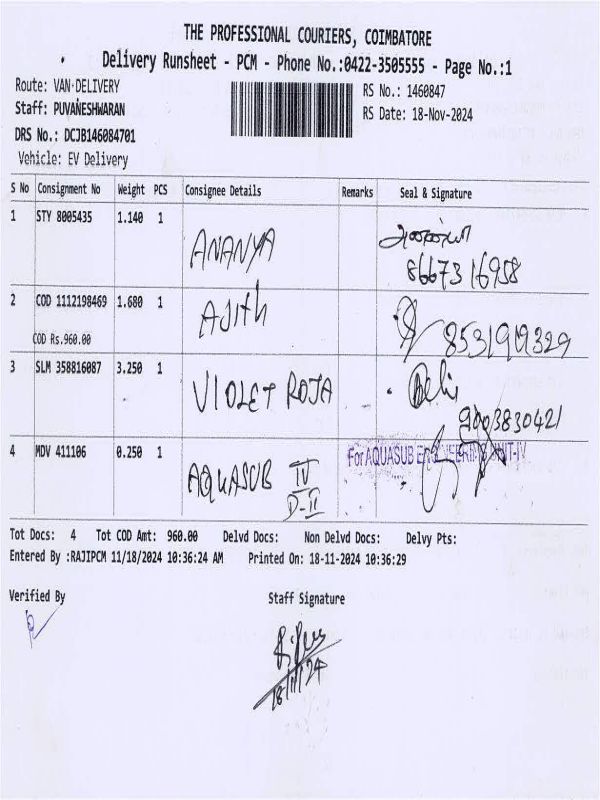 THE PROFESSIONAL COURIERS, COIMBATORE
Delivery Runsheet - PCM - Phone No.:0422-3505555 - Page No.:1
Route: VAN-DELIVERY
RS No.: 1460847
Staff: PUVANESHWARAN
RS Date: 18-Nov-2024
DRS No.: DCJB146084701
Vehicle: EV Delivery
S No Consignment No Weight PCS Consignee Details Remarks Seal & Signature
1 STY 8005435 1.140 1 ANANYA அனன்யா
8667316958
2 COD 1112198469 1.680 1 AJith
COD Rs.960.00 8531919329
3 SLM 358816087 3.250 1 VIOLET ROJA
9003830421
4 MDV 411106 0.250 1 AQUASUB IV For AQUASUB ENGINEERING UNIT-IV
D-II
Tot Docs: 4 Tot COD Amt: 960.00 Delvd Docs: Non Delvd Docs: Delvy Pts:
Entered By :RAJIPCM 11/18/2024 10:36:24 AM Printed On: 18-11-2024 10:36:29
Verified By Staff Signature
18/11/24